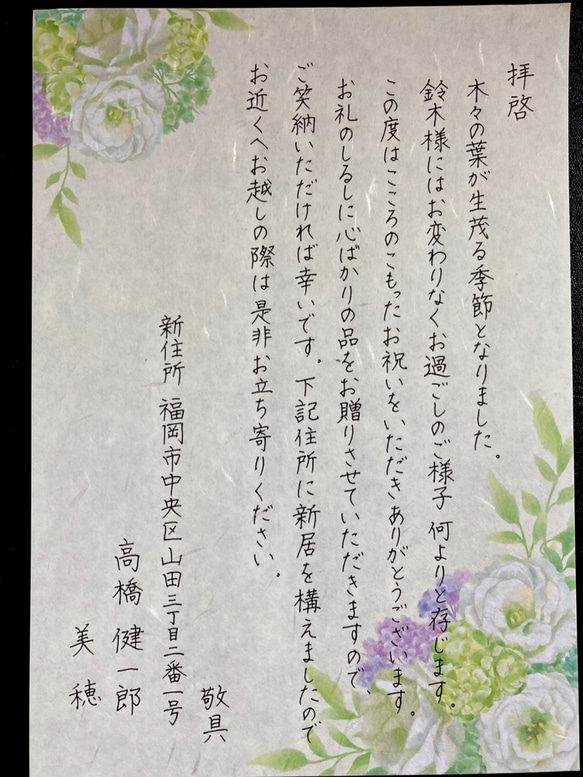 拝啓
木々の葉が生茂る季節となりました。
鈴木様にはお変わりなくお過ごしのご様子 何よりと存じます。
この度はこころのこもったお祝いをいただきありがとうございます。
お礼のしるしに心ばかりの品をお贈りさせていただきますので、
ご笑納いただければ幸いです。下記住所に新居を構えましたので
お近くへお越しの際は是非お立ち寄りください。
敬具
新住所 福岡市中央区山田三丁目二番一号
高橋 健一郎
美穂